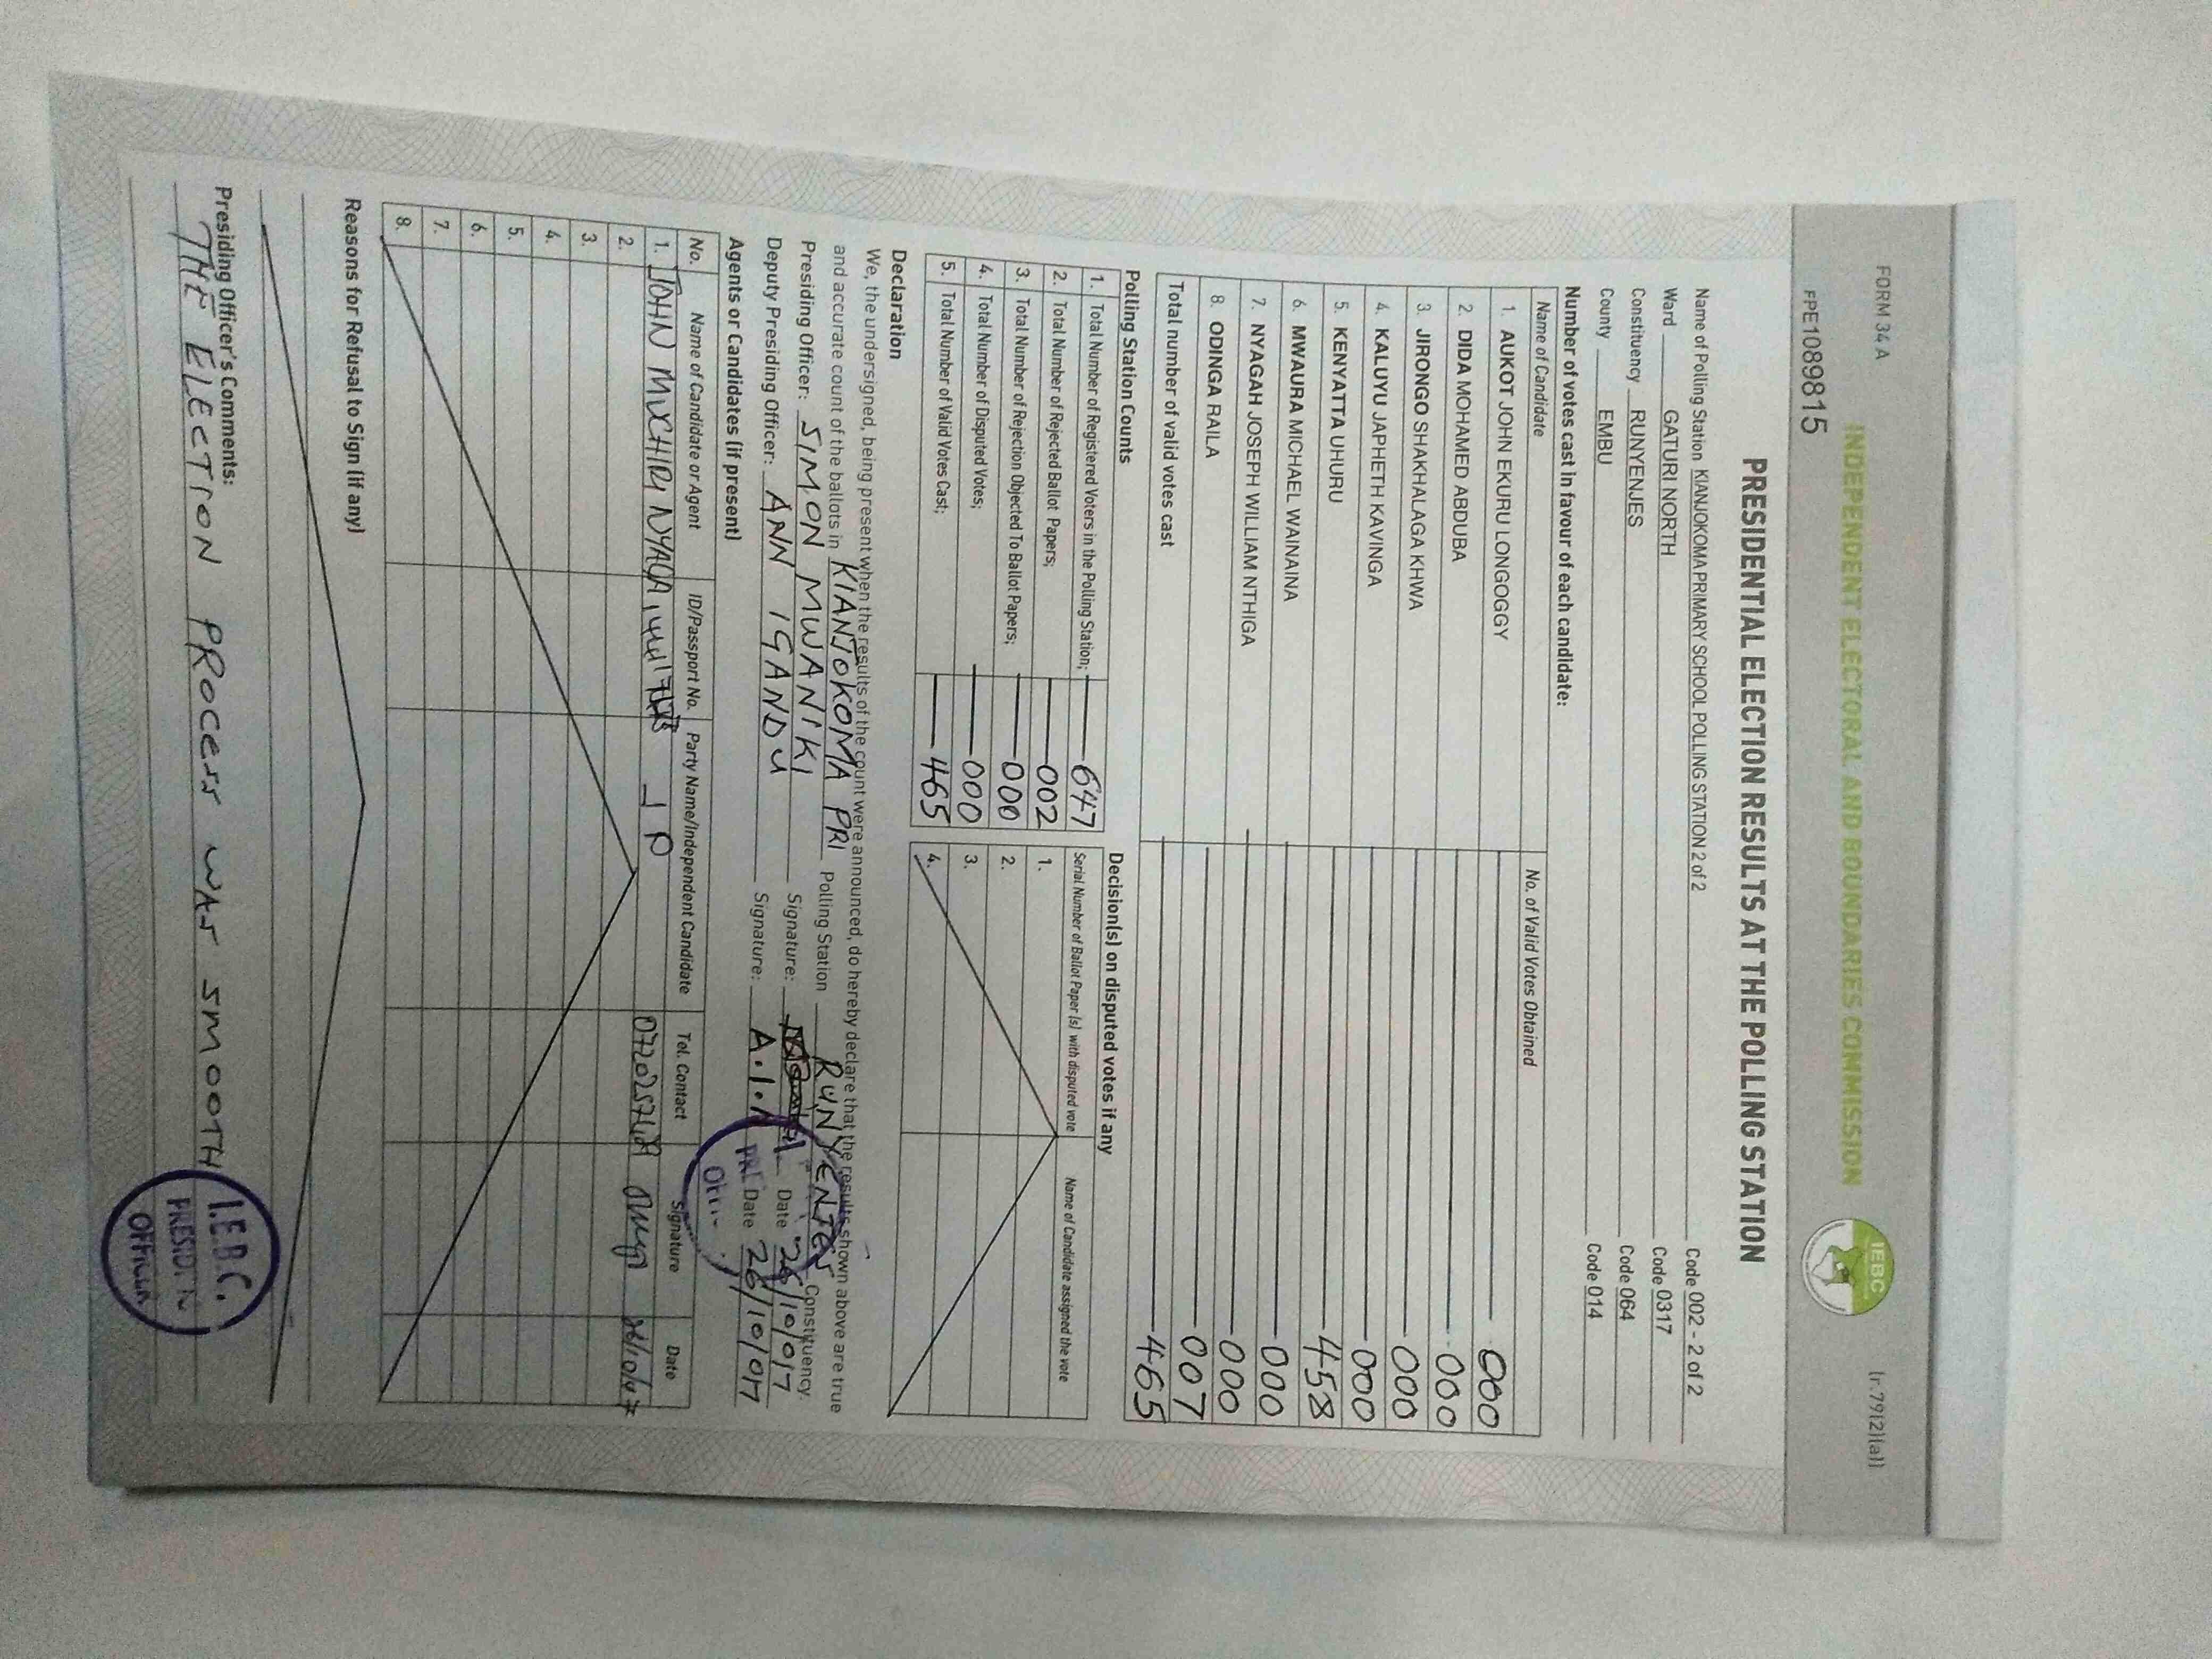 FORM 34 A
(r.79(2)(a))
FPE1089815
INDEPENDENT ELECTORAL AND BOUNDARIES COMMISSION
IEBC
PRESIDENTIAL ELECTION RESULTS AT THE POLLING STATION
Name of Polling Station KIANJOKOMA PRIMARY SCHOOL POLLING STATION 2 of 2 Code 002 - 2 of 2
Ward GATURI NORTH Code 0317
Constituency RUNYENJES Code 064
County EMBU Code 014
Number of votes cast in favour of each candidate:
Name of Candidate No. of Valid Votes Obtained
1. AUKOT JOHN EKURU LONGOGGY 000
2. DIDA MOHAMED ABDUBA 000
3. JIRONGO SHAKHALAGA KHWA 000
4. KALUYU JAPHETH KAVINGA 000
5. KENYATTA UHURU 458
6. MWAURA MICHAEL WAINAINA 000
7. NYAGAH JOSEPH WILLIAM NTHIGA 000
8. ODINGA RAILA 007
Total number of valid votes cast 465
Polling Station Counts
1. Total Number of Registered Voters in the Polling Station; 647
2. Total Number of Rejected Ballot Papers; 002
3. Total Number of Rejection Objected To Ballot Papers; 000
4. Total Number of Disputed Votes; 000
5. Total Number of Valid Votes Cast; 465
Decision(s) on disputed votes if any
Serial Number of Ballot Paper (s) with disputed vote Name of Candidate assigned the vote
1.
2.
3.
4.
Declaration
We, the undersigned, being present when the results of the count were announced, do hereby declare that the results shown above are true
and accurate count of the ballots in KIANJOKOMA PRI Polling Station RUNYENJES Constituency.
Presiding Officer: SIMON MWANIKI Signature: Date 26/10/017
Deputy Presiding Officer: ANN IGANDU Signature: A.I.N Date 26/10/017
Agents or Candidates (if present)
No. Name of Candidate or Agent ID/Passport No. Party Name/Independent Candidate Tel. Contact Signature Date
1. JOHN MUCHIRI NYAGA JP
2.
3.
4.
5.
6.
7.
8.
Reasons for Refusal to Sign (if any)
Presiding Officer's Comments:
THE ELECTION PROCESS WAS SMOOTH
I.E.B.C.
PRESIDIN
OFFICER